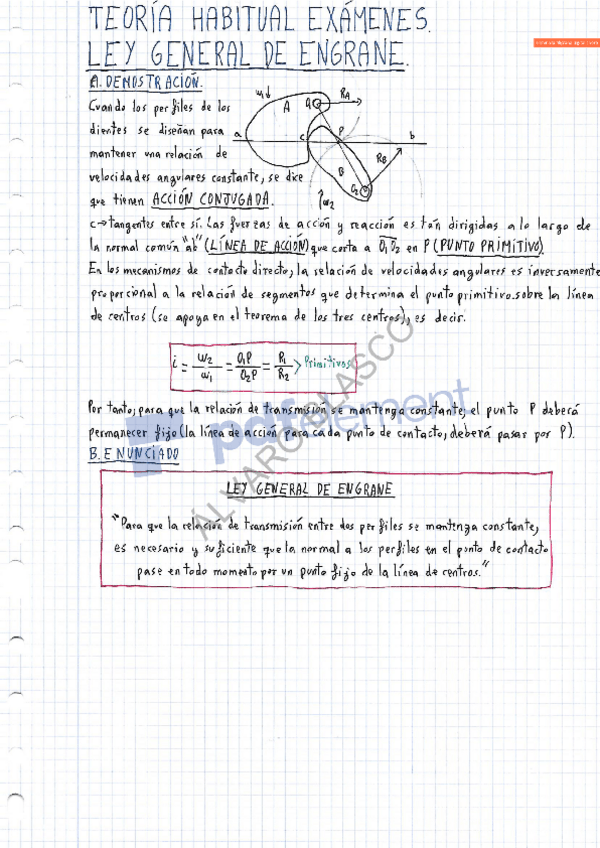 TEORÍA HABITUAL EXÁMENES.
LEY GENERAL DE ENGRANE.
A. DEMOSTRACIÓN.
Cuando los perfiles de los
dientes se diseñan para
mantener una relación de
velocidades angulares constante, se dice
que tienen ACCIÓN CONJUGADA.
ω1 A O1 RA
a c P b
B RB
ω2 O2
c→tangentes entre sí. Las fuerzas de acción y reacción están dirigidas a lo largo de
la normal común "ab" (LÍNEA DE ACCIÓN) que corta a O1O2 en P (PUNTO PRIMITIVO).
En los mecanismos de contacto directo, la relación de velocidades angulares es inversamente
proporcional a la relación de segmentos que determina el punto primitivo sobre la línea
de centros (se apoya en el teorema de los tres centros), es decir:
i = ω2/ω1 = O1P/O2P = R1/R2 > Primitivos
Por tanto, para que la relación de transmisión se mantenga constante, el punto P deberá
permanecer fijo (la línea de acción para cada punto de contacto, deberá pasar por P).
B. ENUNCIADO
LEY GENERAL DE ENGRANE
"Para que la relación de transmisión entre dos perfiles se mantenga constante,
es necesario y suficiente que la normal a los perfiles en el punto de contacto
pase en todo momento por un punto fijo de la línea de centros."
ÁLVARO BLASCO
pdfelement